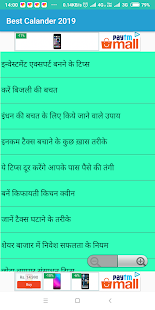 14:00
Best Calander 2019
paytm
mall
इन्वेस्टमेंट एक्सपर्ट बनने के टिप्स
करें बिजली की बचत
इंधन की बचत के लिए किये जाने वाले उपाय
इनकम टैक्स बचाने के कुछ खास तरीके
ये टिप्स दूर करेंगे आपके पास पैसे की तंगी
बनें किफायती किचन क्वीन
जानें टैक्स घटाने के तरीके
शेयर बाजार में निवेश सफलता के नियम
paytm
mall